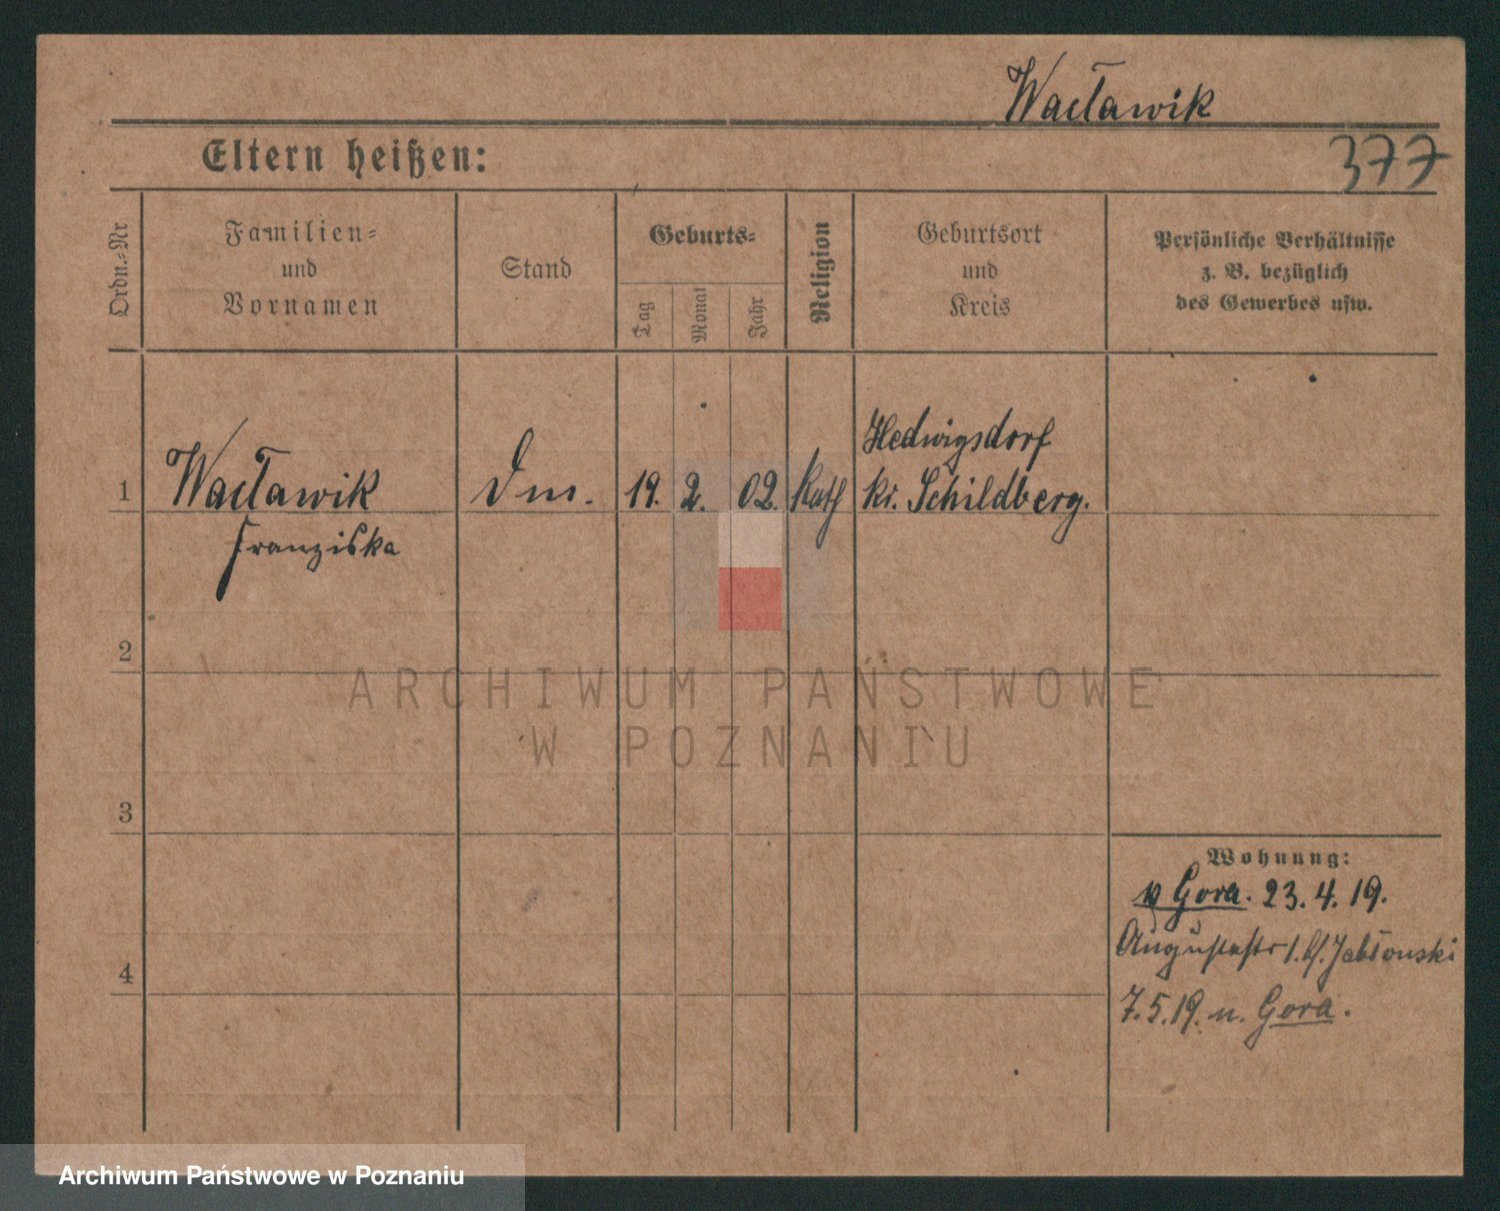 Wacławik
377
Eltern heißen:
Ordn.-Nr
Familien-
und
Vornamen
Stand
Geburts-
Tag
Monat
Jahr
Religion
Geburtsort
und
Kreis
Persönliche Verhältnisse
z. B. bezüglich
des Gewerbes usw.
1
Wacławik
Franziska
19. 2. 02.
Kath
Hedwigsdorf
Kr. Schildberg.
2
ARCHIWUM PAŃSTWOWE
W POZNANIU
3
4
Wohnung:
Gora. 23. 4. 19.
Augustastr 1. b/. Jabłonski
7. 5. 19. n. Gora.
Archiwum Państwowe w Poznaniu